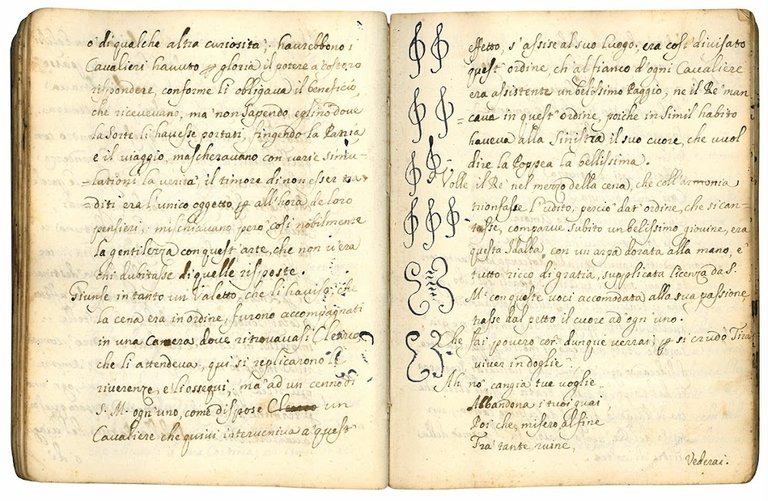 o di qualche altra curiosita; haurebbono i
Cavalieri havuto p gloria il potere a costoro
rispondere, conforme li obligava il beneficio
che ricevevano, ma non sapendo eglino dove
la sorte li havesse portati, fingendo la Patria
e il viaggio, mascheravano con varie simu-
-lationi la verita; il timore di non esser tra-
-diti era l'unico oggetto p all'hora de loro
pensieri; mischiavano pero cosi nobilmente
la gentilezza con quest'arte, che non v'era
chi dubitasse di quelle risposte.
Giunse in tanto un Valetto, che li havisò che
la cena era in ordine, furono accompagnati
in una Camera, dove ritrovavasi Clearco
che li attendeva, qui si replicarono le
riverenze, e li ossequi, ma ad un cenno di
S. M. ogn'uno, come dispose un
Cavaliere che quivi interveniva a quest
effetto, s'assise al suo luogo; era cosi divisato
quest'ordine, ch'al fianco d'ogni Cavaliere
era assistente un belissimo Paggio, ne il Re man
cava in quest'ordine, poiche in simil habito
haveva alla sinistra il suo cuore, che vuol
dire la Popsea la bellissima.
Volle il Re nel mezzo della cena, che coll'armonia
trionfasse l'udito, perciò dat'ordine, che si can-
tasse, comparve subito un belissimo giovine, era
questa Idalba con un arpa dorata alla mano, e
tutto ricco di gratia, supplicata licenza da S.
M. con queste voci accomodata alla sua passione
trasse dal petto il cuore ad ogn'uno.
Che fai povero cor dunque verrai p si crudo Tira
viver in doglie
Ah nò cangia tue voglie
Abbandona i tuoi guai,
Poi che misero alfine
Tra tante ruine,
Vederai.